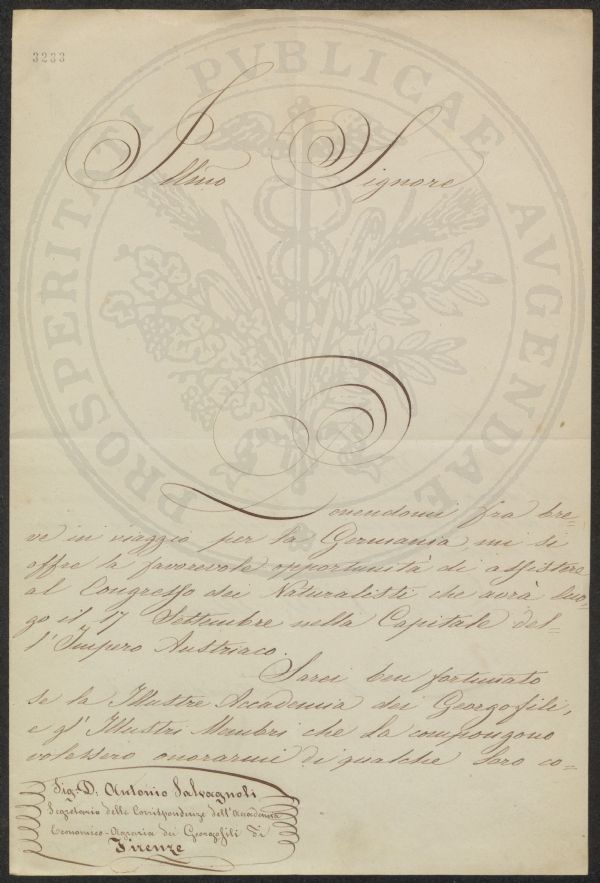 3233
PROSPERITATI PVBLICAE AVGENDAE
Illmo Signore
Ponendomi fra bre-
ve in viaggio per la Germania, mi si
offre la favorevole opportunità di assistere
al Congresso dei Naturalisti che avrà luo-
go il 17 Settembre nella Capitale del-
l'Impero Austriaco.
Sarei ben fortunato
se la Illustre Accademia dei Georgofili,
e gl'Illustri Membri che la compongono
volessero onorarmi di qualche loro co-
Sig. D. Antonio Salvagnoli
Segretario delle Corrispondenze dell'Accademia
Economico-Agraria dei Georgofili di
Firenze